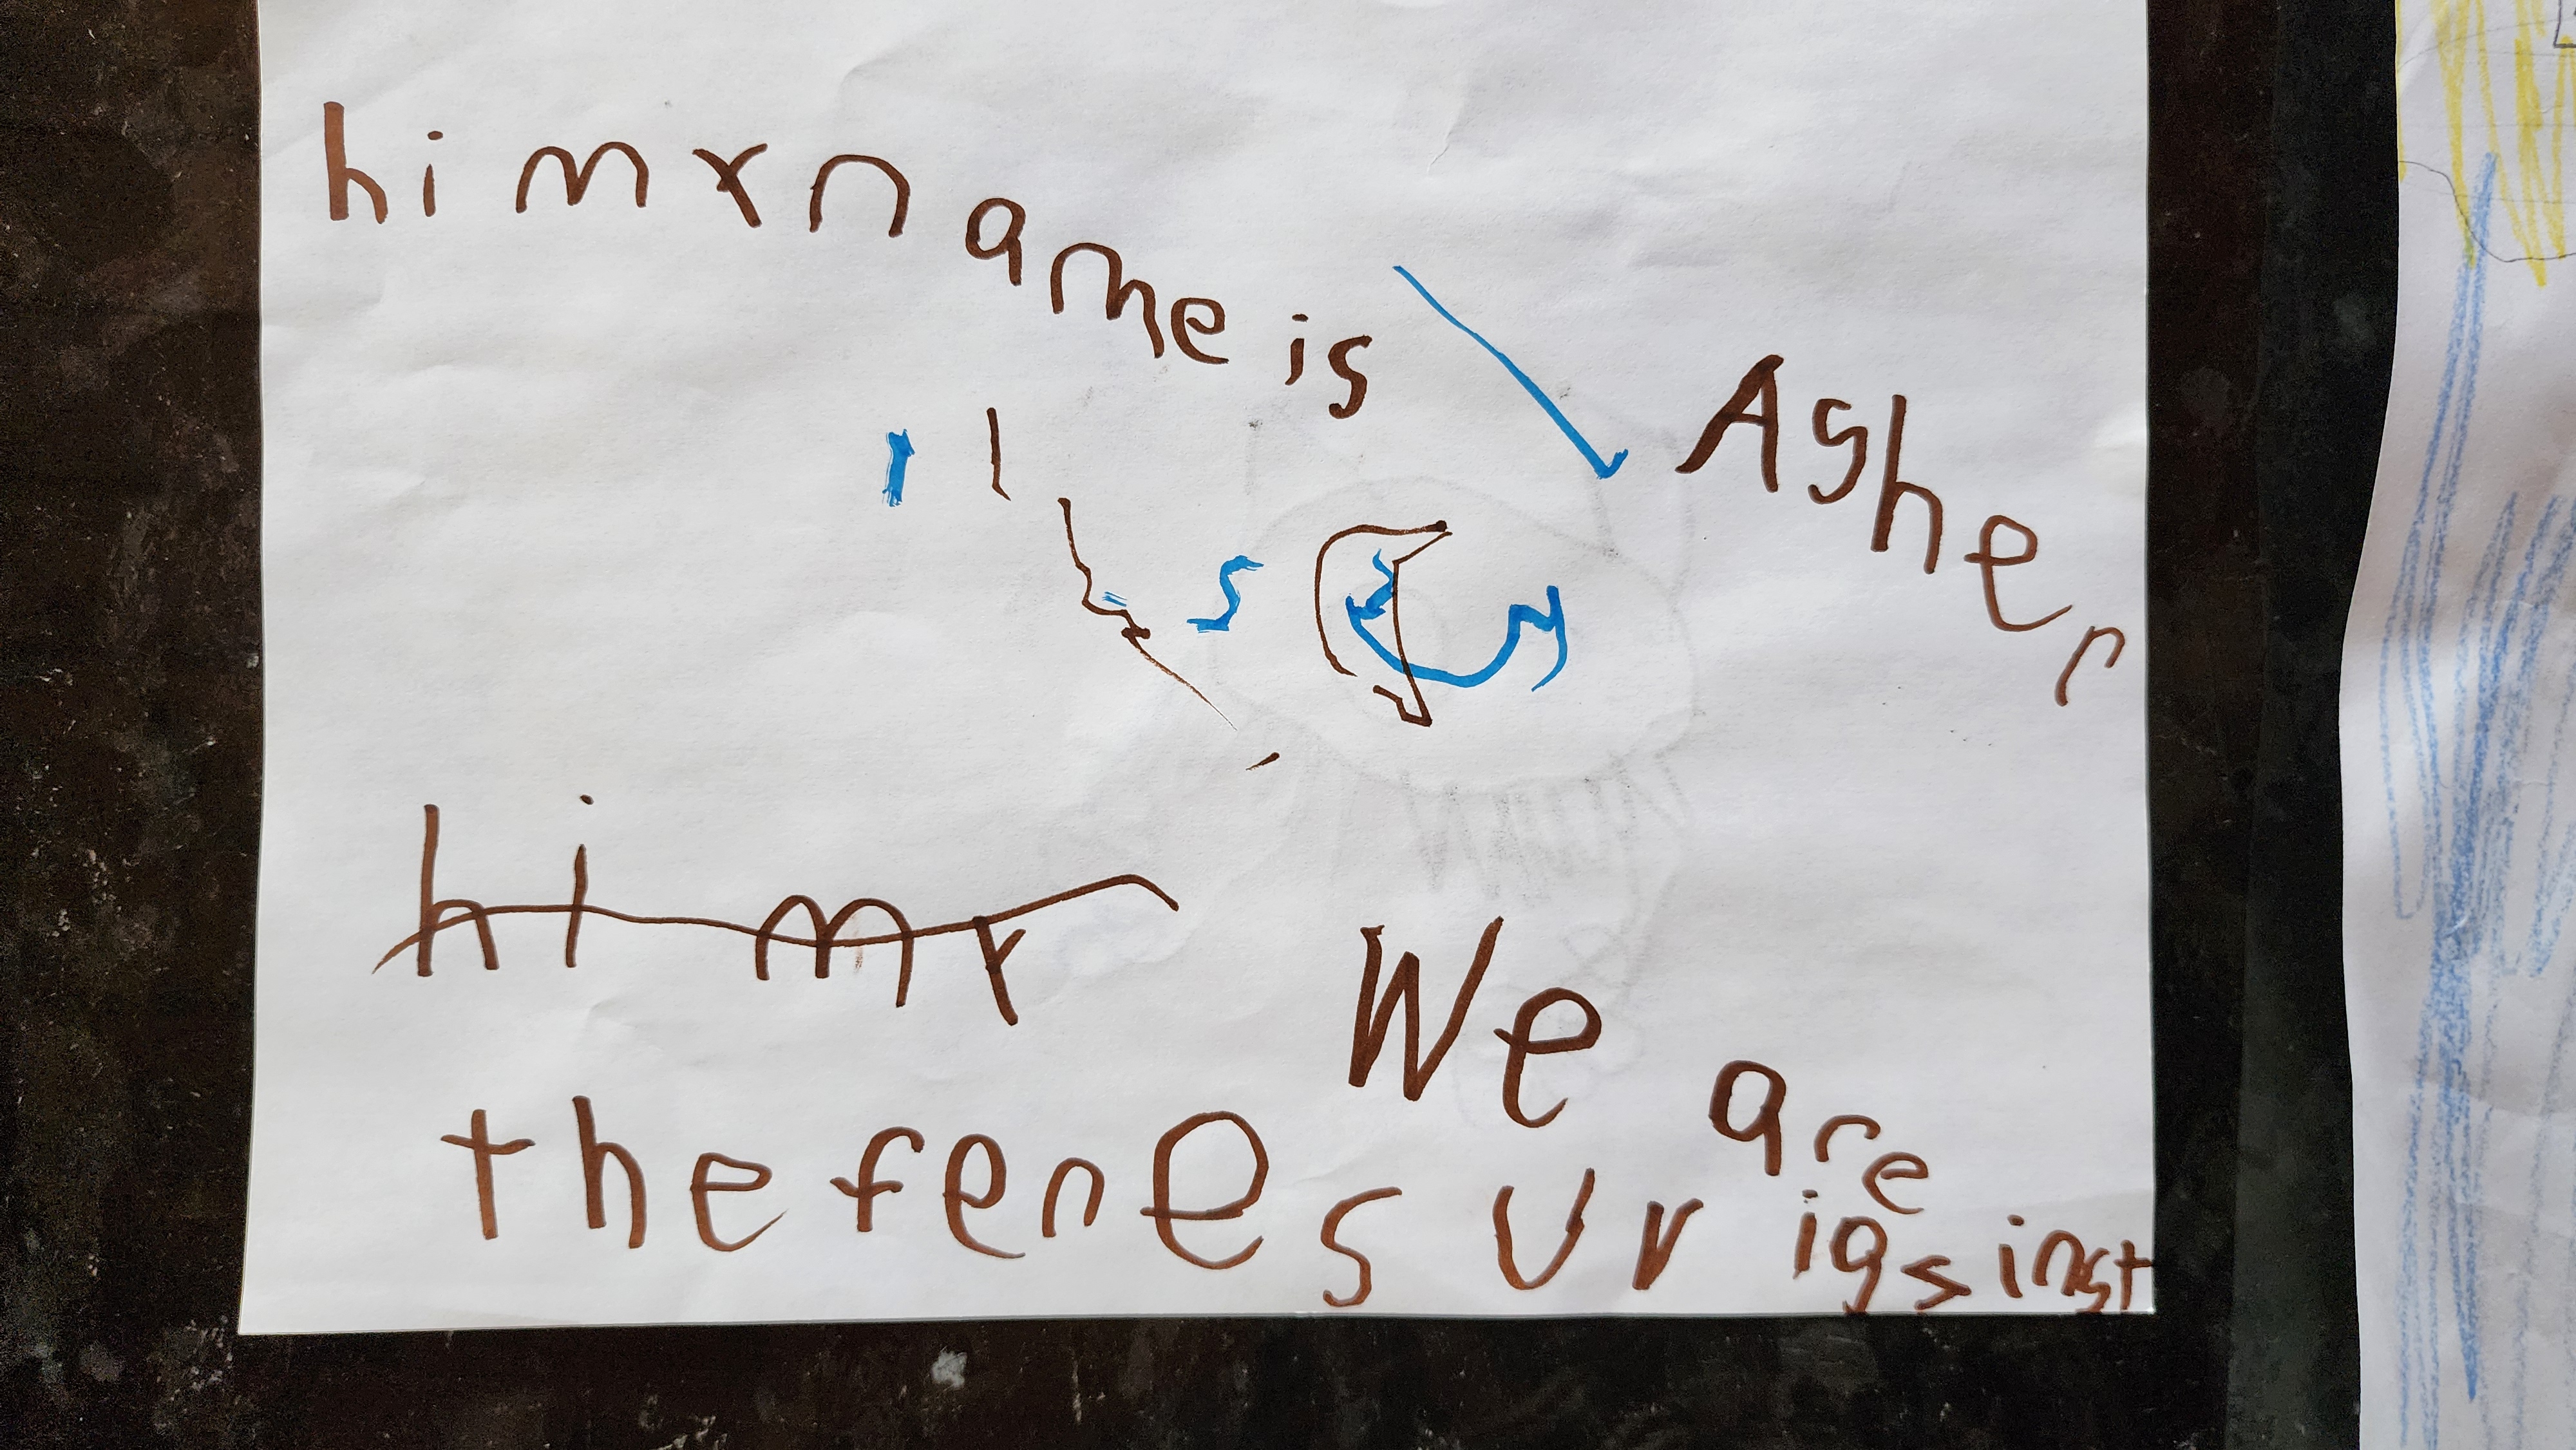 hi my name is
Asher
hi my
We are
the fenes ur igsinst